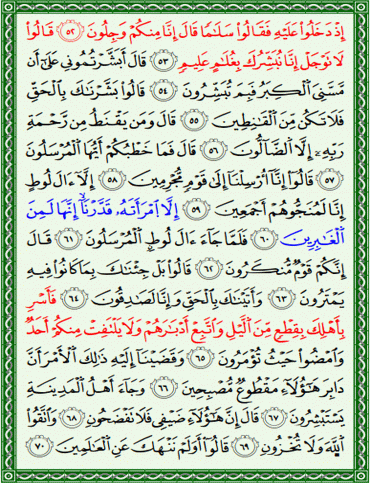 إِذْ دَخَلُوا۟ عَلَيْهِ فَقَالُوا۟ سَلَٰمًا قَالَ إِنَّا مِنكُمْ وَجِلُونَ ٥٢ قَالُوا۟
لَا تَوْجَلْ إِنَّا نُبَشِّرُكَ بِغُلَٰمٍ عَلِيمٍ ٥٣ قَالَ أَبَشَّرْتُمُونِى عَلَىٰٓ أَن
مَّسَّنِىَ ٱلْكِبَرُ فَبِمَ تُبَشِّرُونَ ٥٤ قَالُوا۟ بَشَّرْنَٰكَ بِٱلْحَقِّ
فَلَا تَكُن مِّنَ ٱلْقَٰنِطِينَ ٥٥ قَالَ وَمَن يَقْنَطُ مِن رَّحْمَةِ
رَبِّهِۦٓ إِلَّا ٱلضَّآلُّونَ ٥٦ قَالَ فَمَا خَطْبُكُمْ أَيُّهَا ٱلْمُرْسَلُونَ
٥٧ قَالُوٓا۟ إِنَّآ أُرْسِلْنَآ إِلَىٰ قَوْمٍ مُّجْرِمِينَ ٥٨ إِلَّآ ءَالَ لُوطٍ
إِنَّا لَمُنَجُّوهُمْ أَجْمَعِينَ ٥٩ إِلَّا ٱمْرَأَتَهُۥ قَدَّرْنَآ إِنَّهَا لَمِنَ
ٱلْغَٰبِرِينَ ٦٠ فَلَمَّا جَآءَ ءَالَ لُوطٍ ٱلْمُرْسَلُونَ ٦١ قَالَ
إِنَّكُمْ قَوْمٌ مُّنكَرُونَ ٦٢ قَالُوا۟ بَلْ جِئْنَٰكَ بِمَا كَانُوا۟ فِيهِ
يَمْتَرُونَ ٦٣ وَأَتَيْنَٰكَ بِٱلْحَقِّ وَإِنَّا لَصَٰدِقُونَ ٦٤ فَأَسْرِ
بِأَهْلِكَ بِقِطْعٍ مِّنَ ٱلَّيْلِ وَٱتَّبِعْ أَدْبَٰرَهُمْ وَلَا يَلْتَفِتْ مِنكُمْ أَحَدٌ
وَٱمْضُوا۟ حَيْثُ تُؤْمَرُونَ ٦٥ وَقَضَيْنَآ إِلَيْهِ ذَٰلِكَ ٱلْأَمْرَ أَنَّ
دَابِرَ هَٰٓؤُلَآءِ مَقْطُوعٌ مُّصْبِحِينَ ٦٦ وَجَآءَ أَهْلُ ٱلْمَدِينَةِ
يَسْتَبْشِرُونَ ٦٧ قَالَ إِنَّ هَٰٓؤُلَآءِ ضَيْفِى فَلَا تَفْضَحُونِ ٦٨ وَٱتَّقُوا۟
ٱللَّهَ وَلَا تُخْزُونِ ٦٩ قَالُوٓا۟ أَوَلَمْ نَنْهَكَ عَنِ ٱلْعَٰلَمِينَ ٧٠